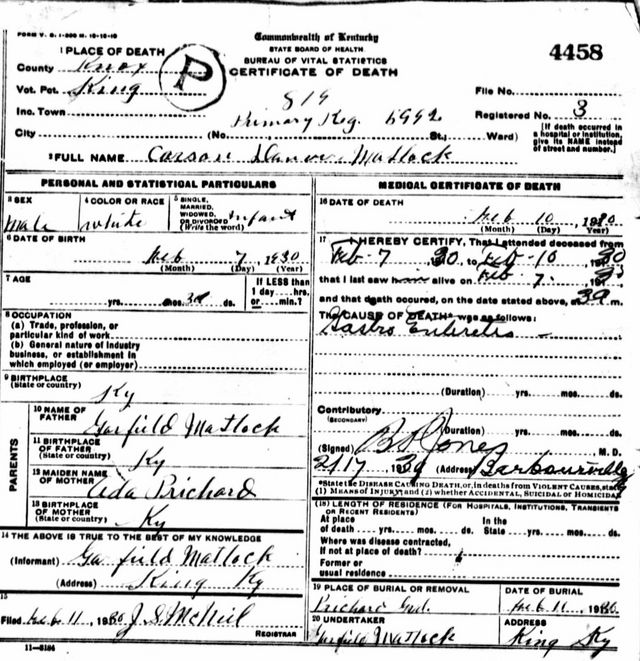 FORM V. S. 1-300 M. 10-10-10
Commonwealth of Kentucky
STATE BOARD OF HEALTH
BUREAU OF VITAL STATISTICS
CERTIFICATE OF DEATH
4458
1 PLACE OF DEATH
County Knox
P
Vot. Pct. King
File No.
819
Inc. Town
Primary Reg. 6992
Registered No. 3
City (No. St.; Ward)
[If death occurred in a hospital or institution, give its NAME instead of street and number.]
2 FULL NAME Carson Matlock
PERSONAL AND STATISTICAL PARTICULARS
3 SEX Male
4 COLOR OR RACE white
5 SINGLE, MARRIED, WIDOWED, OR DIVORCED (Write the word) Infant
6 DATE OF BIRTH
Feb 7, 1930
(Month) (Day) (Year)
7 AGE
If LESS than 1 day....hrs. or....min.?
yrs. mos. 3 ds.
8 OCCUPATION
(a) Trade, profession, or particular kind of work
(b) General nature of industry business, or establishment in which employed (or employer)
9 BIRTHPLACE
(State or country) Ky
PARENTS
10 NAME OF FATHER Garfield Matlock
11 BIRTHPLACE OF FATHER (State or country) Ky
12 MAIDEN NAME OF MOTHER Ada Prichard
13 BIRTHPLACE OF MOTHER (State or country) Ky
14 THE ABOVE IS TRUE TO THE BEST OF MY KNOWLEDGE
(Informant) Garfield Matlock
(Address) King Ky
15
Filed Feb 11, 1930 J S McNeil
REGISTRAR
11-5184
MEDICAL CERTIFICATE OF DEATH
16 DATE OF DEATH
Feb 10, 1930
(Month) (Day) (Year)
17 I HEREBY CERTIFY, That I attended deceased from
Feb-7 30, to Feb-10 30
that I last saw him alive on Feb 7,
and that death occurred, on the date stated above, at m.
The CAUSE OF DEATH* was as follows:
Gastro Enteretis
(Duration) yrs. mos. ds.
Contributory
(SECONDARY)
(Duration) yrs. mos. ds.
(Signed) B Jones M. D.
2/17 1930 (Address) Barbourville
*State the DISEASE CAUSING DEATH, or, in deaths from VIOLENT CAUSES, state
(1) MEANS OF INJURY; and (2) whether ACCIDENTAL, SUICIDAL or HOMICIDAL
(18) LENGTH OF RESIDENCE (FOR HOSPITALS, INSTITUTIONS, TRANSIENTS OR RECENT RESIDENTS)
At place of death yrs. mos. ds.
In the State yrs. mos. ds.
Where was disease contracted,
If not at place of death?
Former or
usual residence
19 PLACE OF BURIAL OR REMOVAL
Prichard Grd.
DATE OF BURIAL
Feb 11, 1930
20 UNDERTAKER
Garfield Matlock
ADDRESS
King Ky